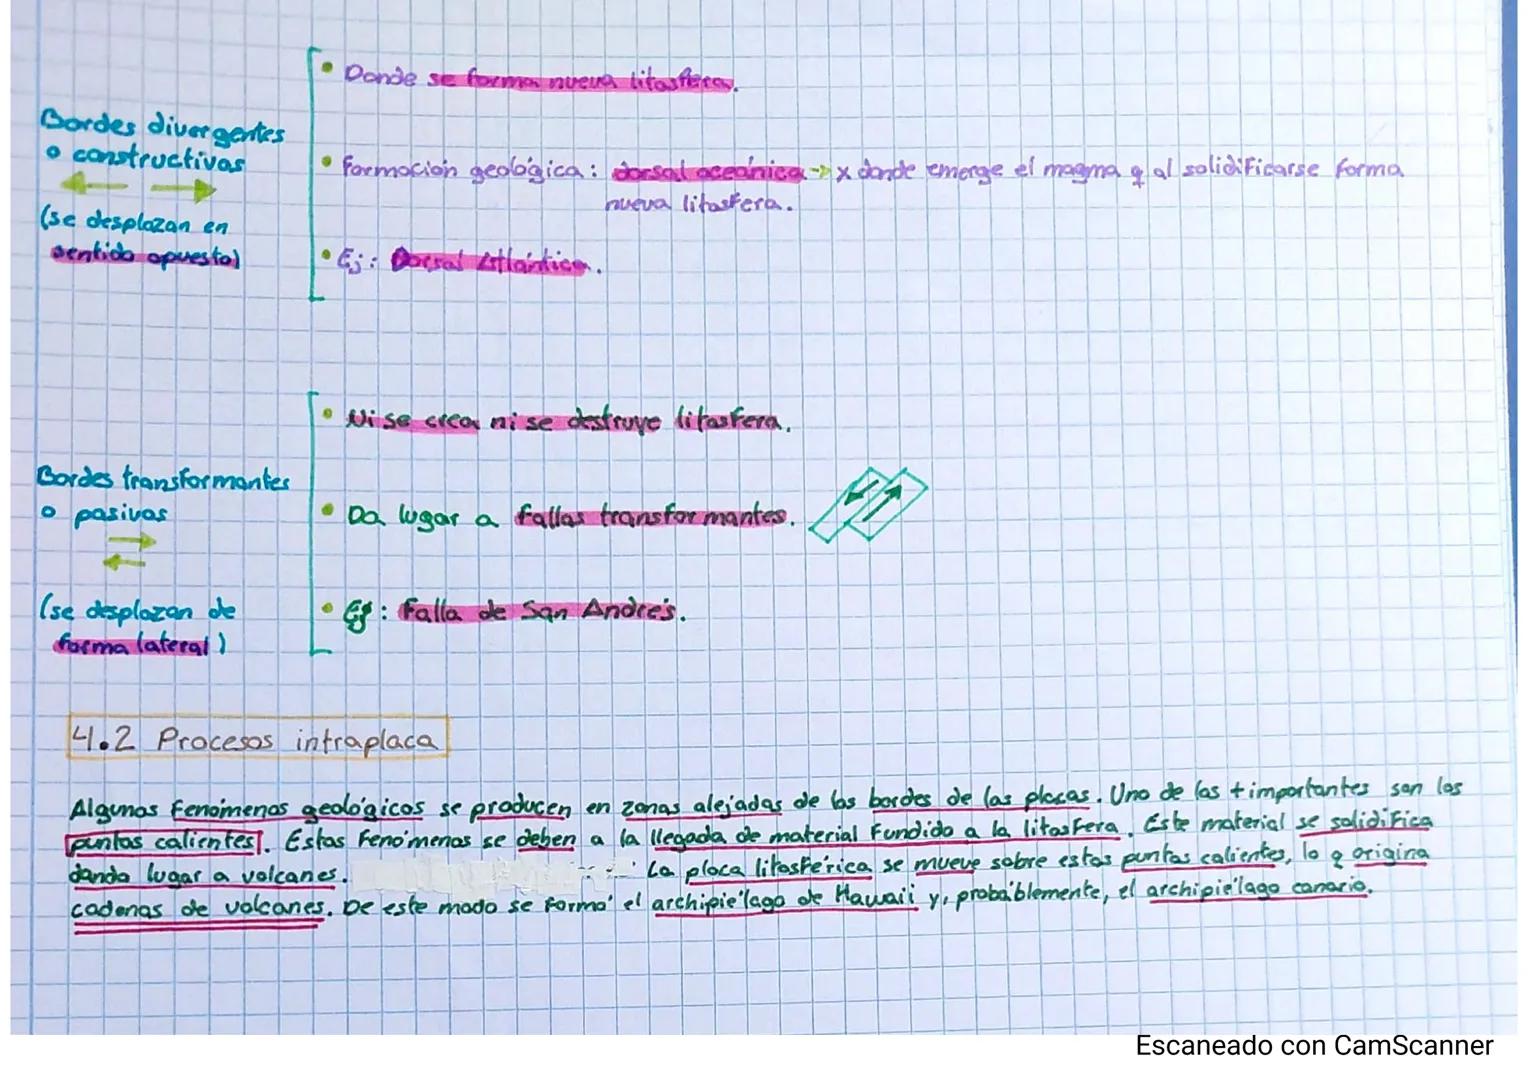 • Donde se forma nueva litosfera.
Bordes divergentes
o constructivos
• Formación geológica: dorsal oceánica -> x donde emerge el magma q al solidificarse forma
nueva litosfera.
(se desplazan en
sentido opuesto)
• Ej: Dorsal Atlántica.
• Ni se crea ni se destruye litosfera.
Bordes transformantes
o pasivos
• Da lugar a fallas transformantes.
(se desplazan de
forma lateral)
• Ej: Falla de San Andrés.
4.2 Procesos intraplaca
Algunos fenómenos geológicos se producen en zonas alejadas de los bordes de las placas. Uno de los + importantes son los
puntos calientes. Estos fenómenos se deben a la llegada de material fundido a la litosfera. Este material se solidifica
dando lugar a volcanes. La placa litosférica se mueve sobre estos puntos calientes, lo q origina
cadenas de volcanes. De este modo se formó el archipiélago de Hawaii y, probáblemente, el archipiélago canario.
Escaneado con CamScanner